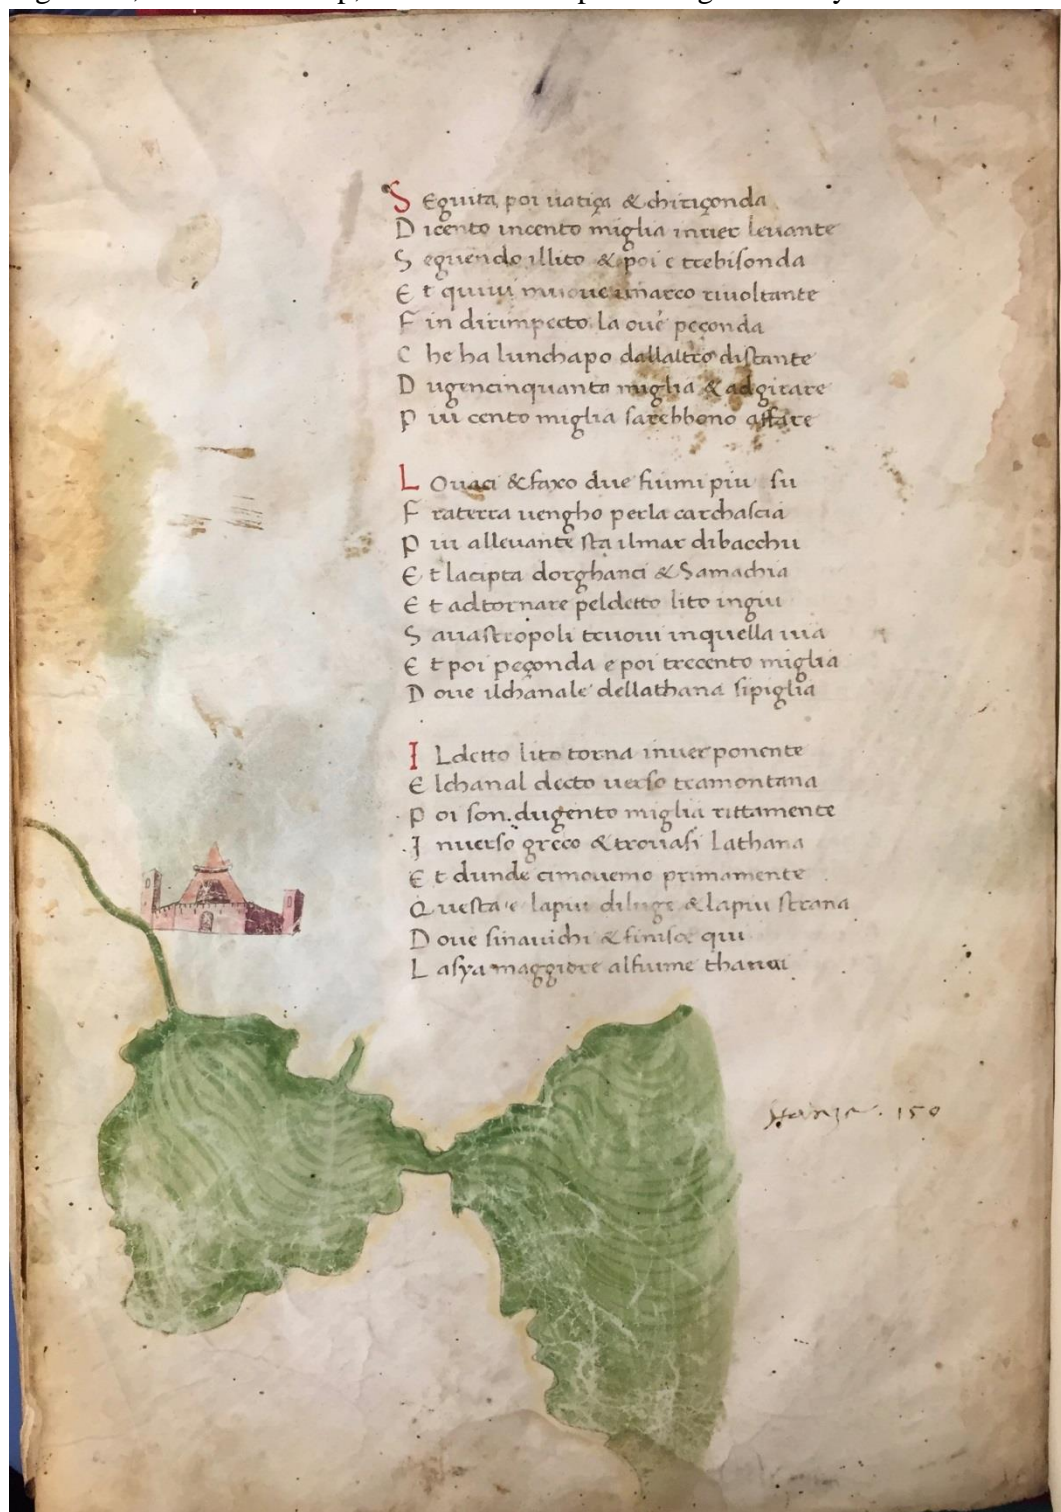 S Eguita poi vatiça & chiriçonda
D icento incento miglia inver levante
S eguendo illito & poi e trebisonda
E t quivi muove unarco rivoltante
F in dirimpecto la ove peçonda
C he ha lunchapo dallaltro distante
D ugencinquanta miglia & adgirare
P iu cento miglia sarebbono affare
L Ovaci & faxo due fiumi piu su
F raterra vengho perla carchascia
P iu allevante sta ilmar dibacchu
E t lacipta dorghanci & Samachia
E t adtornare peldetto lito ingiu
S avastropoli truovi inquella via
E t poi peçonda e poi trecento miglia
D ove ilchanale dellathana sipiglia
I Ldetto lito torna inver ponente
E lchanal decto verso tramontana
P oi son dugento miglia rittamente
I nverso greco & trovasi Lathana
E t dunde cimovemo primamente
Q uesta e lapiu diluge & lapiu strana
D ove sinavichi & finisce qui
L asya maggiore alfiume thanai
stanze. 150